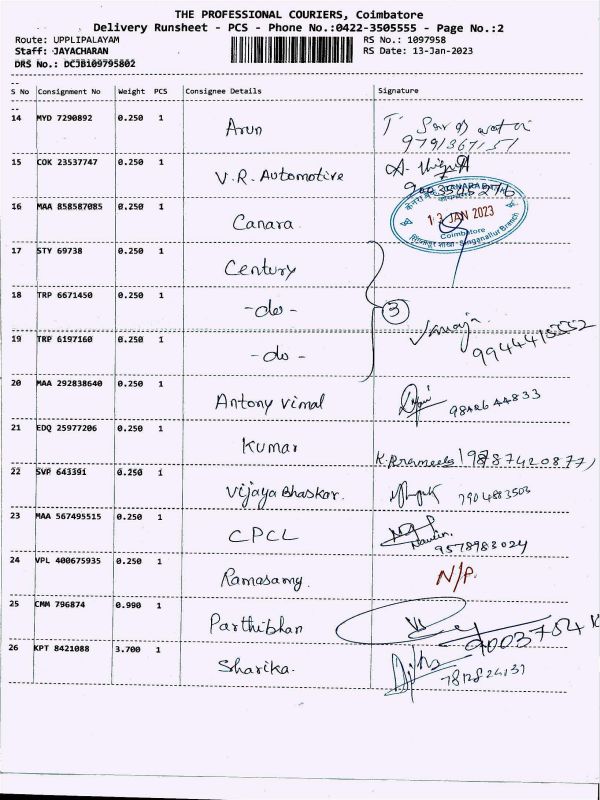 THE PROFESSIONAL COURIERS, Coimbatore
Delivery Runsheet - PCS - Phone No.:0422-3505555 - Page No.:2
Route: UPPLIPALAYAM RS No.: 1097958
Staff: JAYACHARAN RS Date: 13-Jan-2023
DRS No.: DCJB109795802
S No Consignment No Weight PCS Consignee Details Signature
14 MYD 7290892 0.250 1 Arun
9791367151
15 COK 23537747 0.250 1 V.R. Automotive
16 MAA 858587085 0.250 1 Canara
13 JAN 2023
Coimbatore
Singanallur Branch
17 STY 69738 0.250 1 Century
18 TRP 6671450 0.250 1 -do- 3
19 TRP 6197160 0.250 1 -do-
20 MAA 292838640 0.250 1 Antony Vimal 9842644833
21 EDQ 25977206 0.250 1 Kumar
22 SVP 643391 0.250 1 Vijaya Bhaskar. 7904883503
23 MAA 567495515 0.250 1 CPCL
9578983024
24 VPL 400675935 0.250 1 Ramasamy. N/P.
25 CMM 796874 0.990 1 Parthibhan
26 KPT 8421088 3.700 1 Sharika.